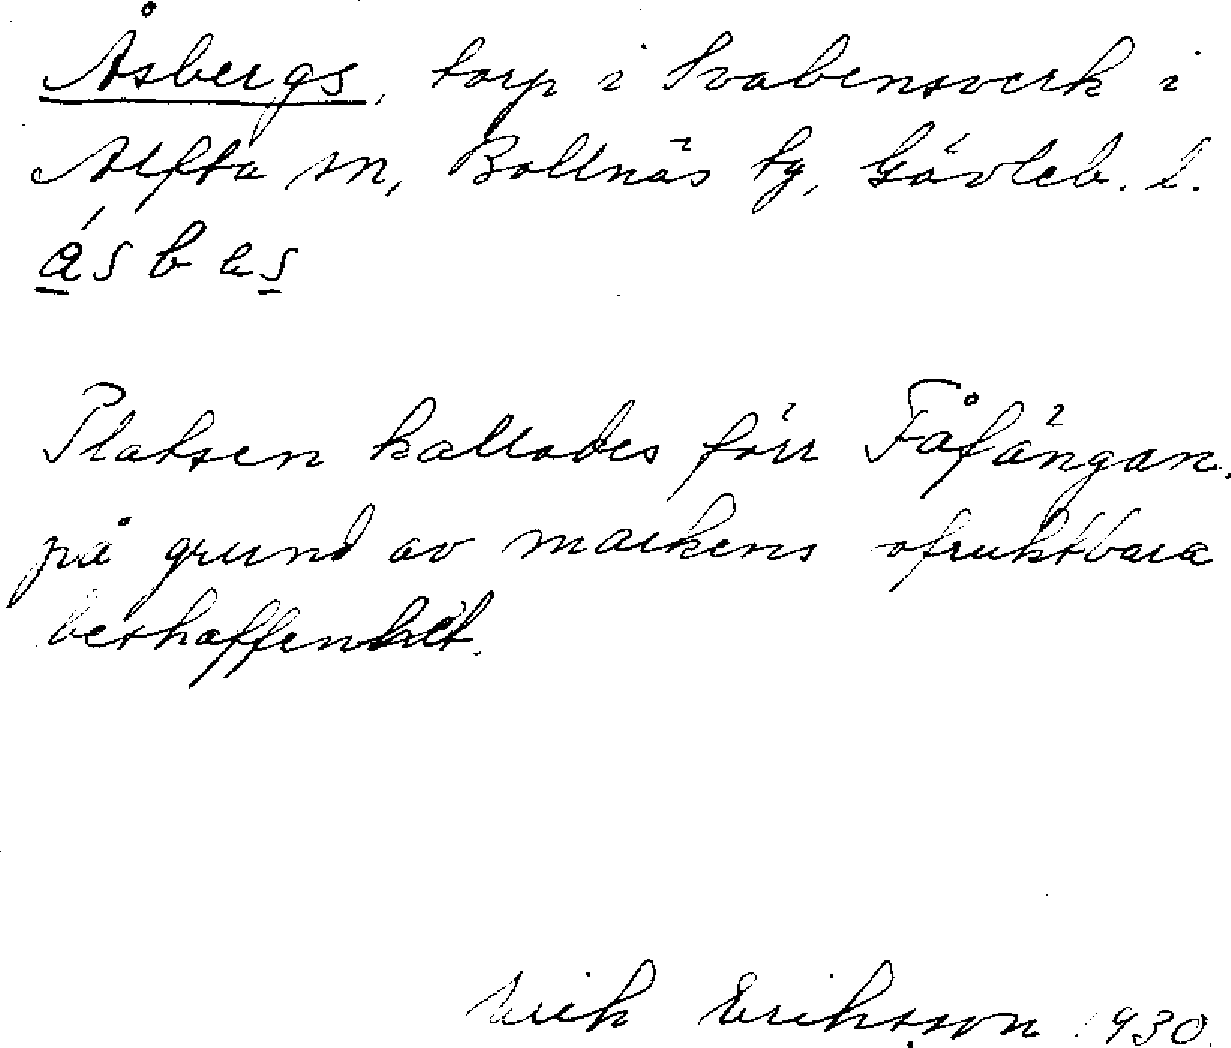 Åsbergs, torp i Svabensverk i
Alfta sn, Bollnäs tg, Gävleb. l.
åsbes
Platsen kallades förr Fåfängan,
på grund av markens ofruktbara
beskaffenhet.
Erik Eriksson 1930.